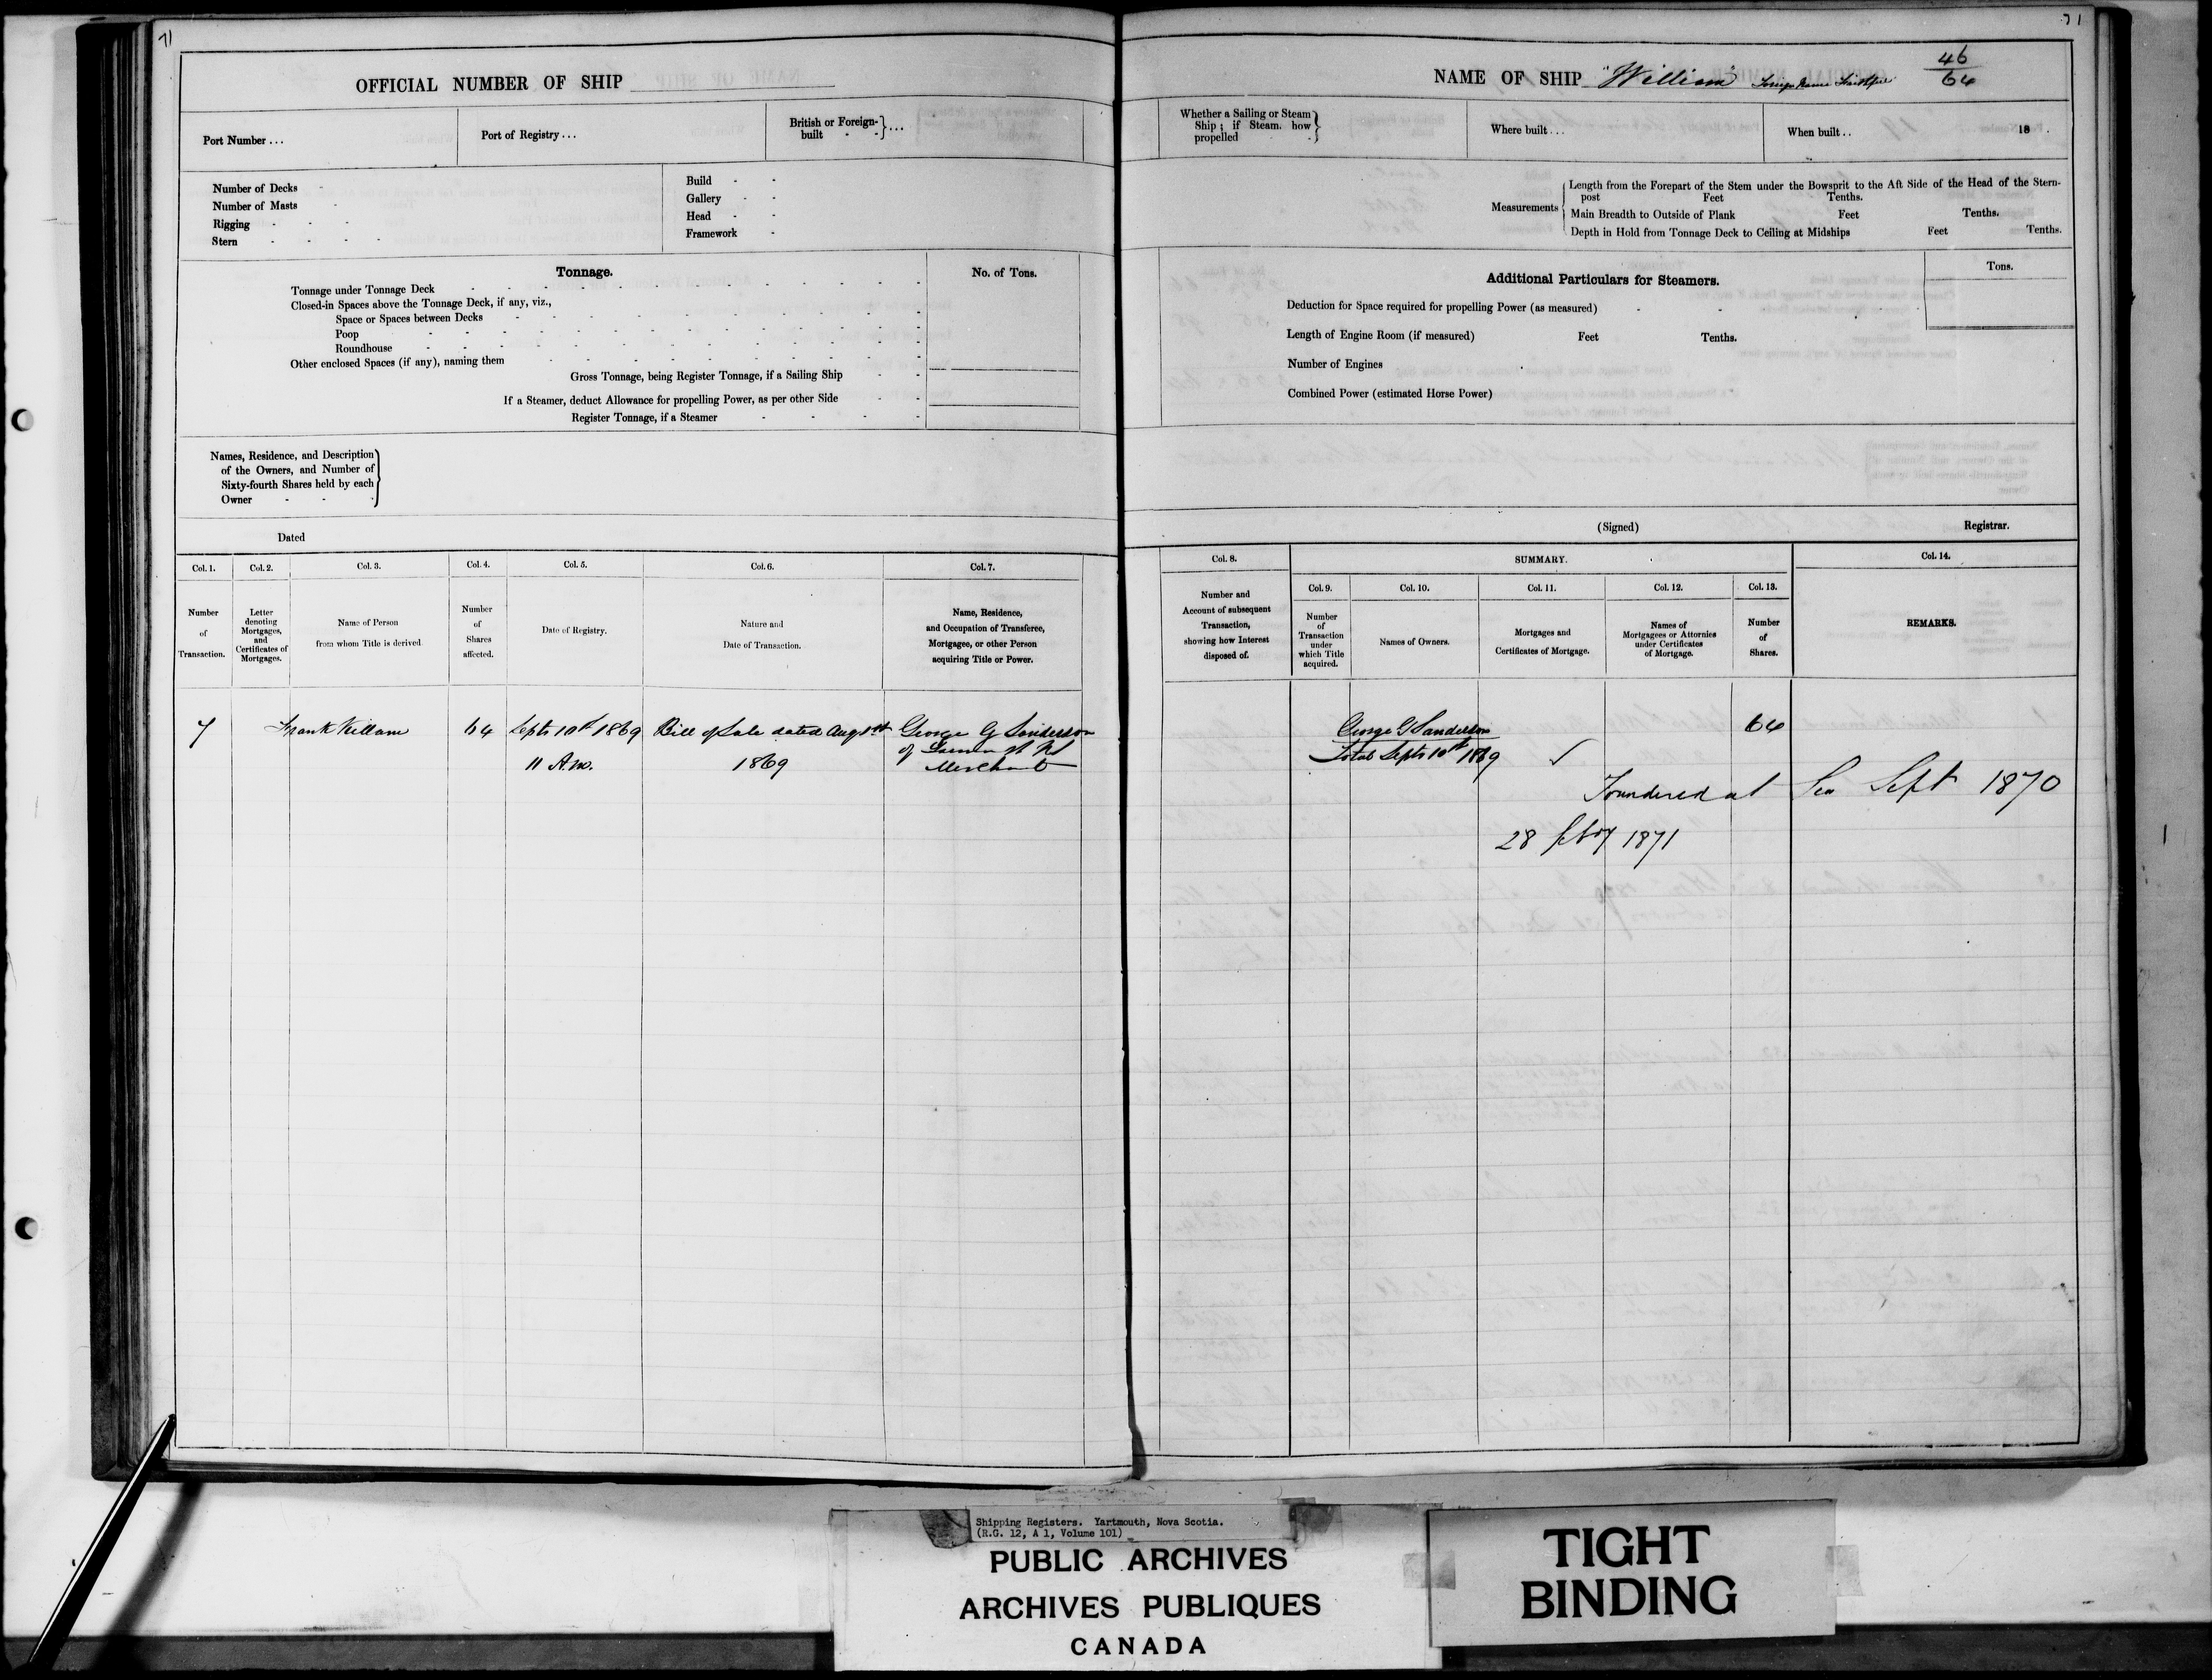 71
OFFICIAL NUMBER OF SHIP
Port Number ...
Port of Registry ...
British or Foreign-built - - } ...
Number of Decks
Number of Masts
Rigging
Stern
Build
Gallery
Head
Framework
Tonnage.
No. of Tons.
Tonnage under Tonnage Deck
Closed-in Spaces above the Tonnage Deck, if any, viz.,
Space or Spaces between Decks
Poop
Roundhouse
Other enclosed Spaces (if any), naming them
Gross Tonnage, being Register Tonnage, if a Sailing Ship
If a Steamer, deduct Allowance for propelling Power, as per other Side
Register Tonnage, if a Steamer
Names, Residence, and Description
of the Owners, and Number of
Sixty-fourth Shares held by each
Owner
Dated
Col. 1.
Col. 2.
Col. 3.
Col. 4.
Col. 5.
Col. 6.
Col. 7.
Number
of
Transaction.
Letter
denoting
Mortgages,
and
Certificates of
Mortgages.
Name of Person
from whom Title is derived
Number
of
Shares
affected.
Date of Registry.
Nature and
Date of Transaction.
Name, Residence,
and Occupation of Transferee,
Mortgagee, or other Person
acquiring Title or Power.
7 Frank Killam 64 Septr 10th 1869 Bill of Sale dated Augst George G Sanderson
11 A.m. 1869 of
Merchant
71
NAME OF SHIP "William" Foreign Name
46
64
Whether a Sailing or Steam
Ship; if Steam, how
propelled
Where built ...
When built .. 18 .
Measurements
Length from the Forepart of the Stem under the Bowsprit to the Aft Side of the Head of the Stern-
post Feet Tenths.
Main Breadth to Outside of Plank Feet Tenths.
Depth in Hold from Tonnage Deck to Ceiling at Midships Feet Tenths.
Additional Particulars for Steamers.
Tons.
Deduction for Space required for propelling Power (as measured)
Length of Engine Room (if measured) Feet Tenths.
Number of Engines
Combined Power (estimated Horse Power)
(Signed) Registrar.
Col. 8.
SUMMARY.
Col. 14.
Number and
Account of subsequent
Transaction,
showing how Interest
disposed of.
Col. 9.
Col. 10.
Col. 11.
Col. 12.
Col. 13.
Number
of
Transaction
under
which Title
acquired.
Names of Owners.
Mortgages and
Certificates of Mortgage.
Names of
Mortgagees or Attornies
under Certificates
of Mortgage.
Number
of
Shares.
REMARKS.
George G Sanderson 64
Total Septr 10th 1869
Foundered at Sea Sept 1870
28 1871
Shipping Registers. Yartmouth, Nova Scotia.
(R.G. 12, A 1, Volume 101)
PUBLIC ARCHIVES
ARCHIVES PUBLIQUES
CANADA
TIGHT
BINDING